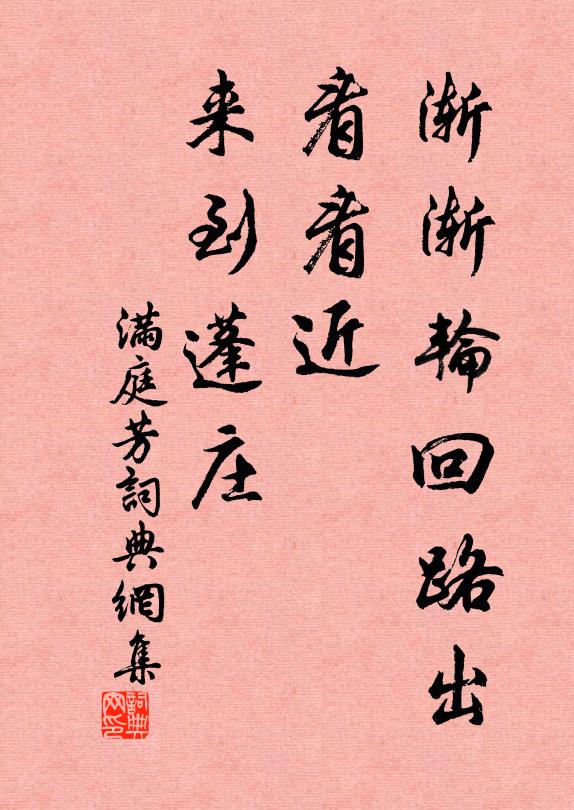 渐渐輪回路出
看看近
来到蓬庄
满庭芳詞典網集
詞典
网印